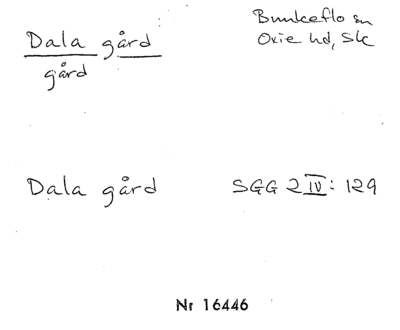 Dala gård
gård
Bunkeflo sn
Oxie hd, Sk
Dala gård
SGG 2 IV: 129
Nr 16446